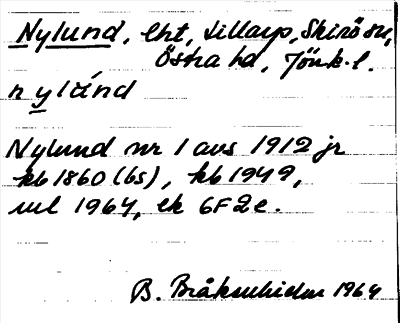 Nylund, lht, Lillarp, Skirö sn,
Östra hd, Jönk.l.
n ylánd
Nylund nr 1 avs 1912 jr
kb 1860 (bs), kb 1949,
uul 1964, ek 6F2e.
B. 1964